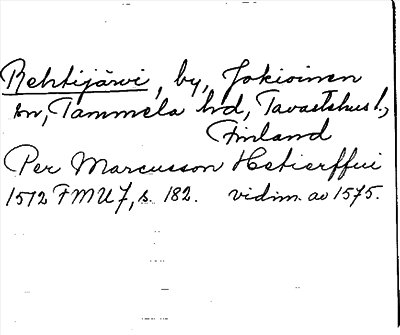 Rehtijärvi, by, Jokioinen
sn, Tammela hd, Tavastehus l.,
Finland
Per Marcusson Hetierffui
1512 FMU 7, s. 182. vidim. av 1575.